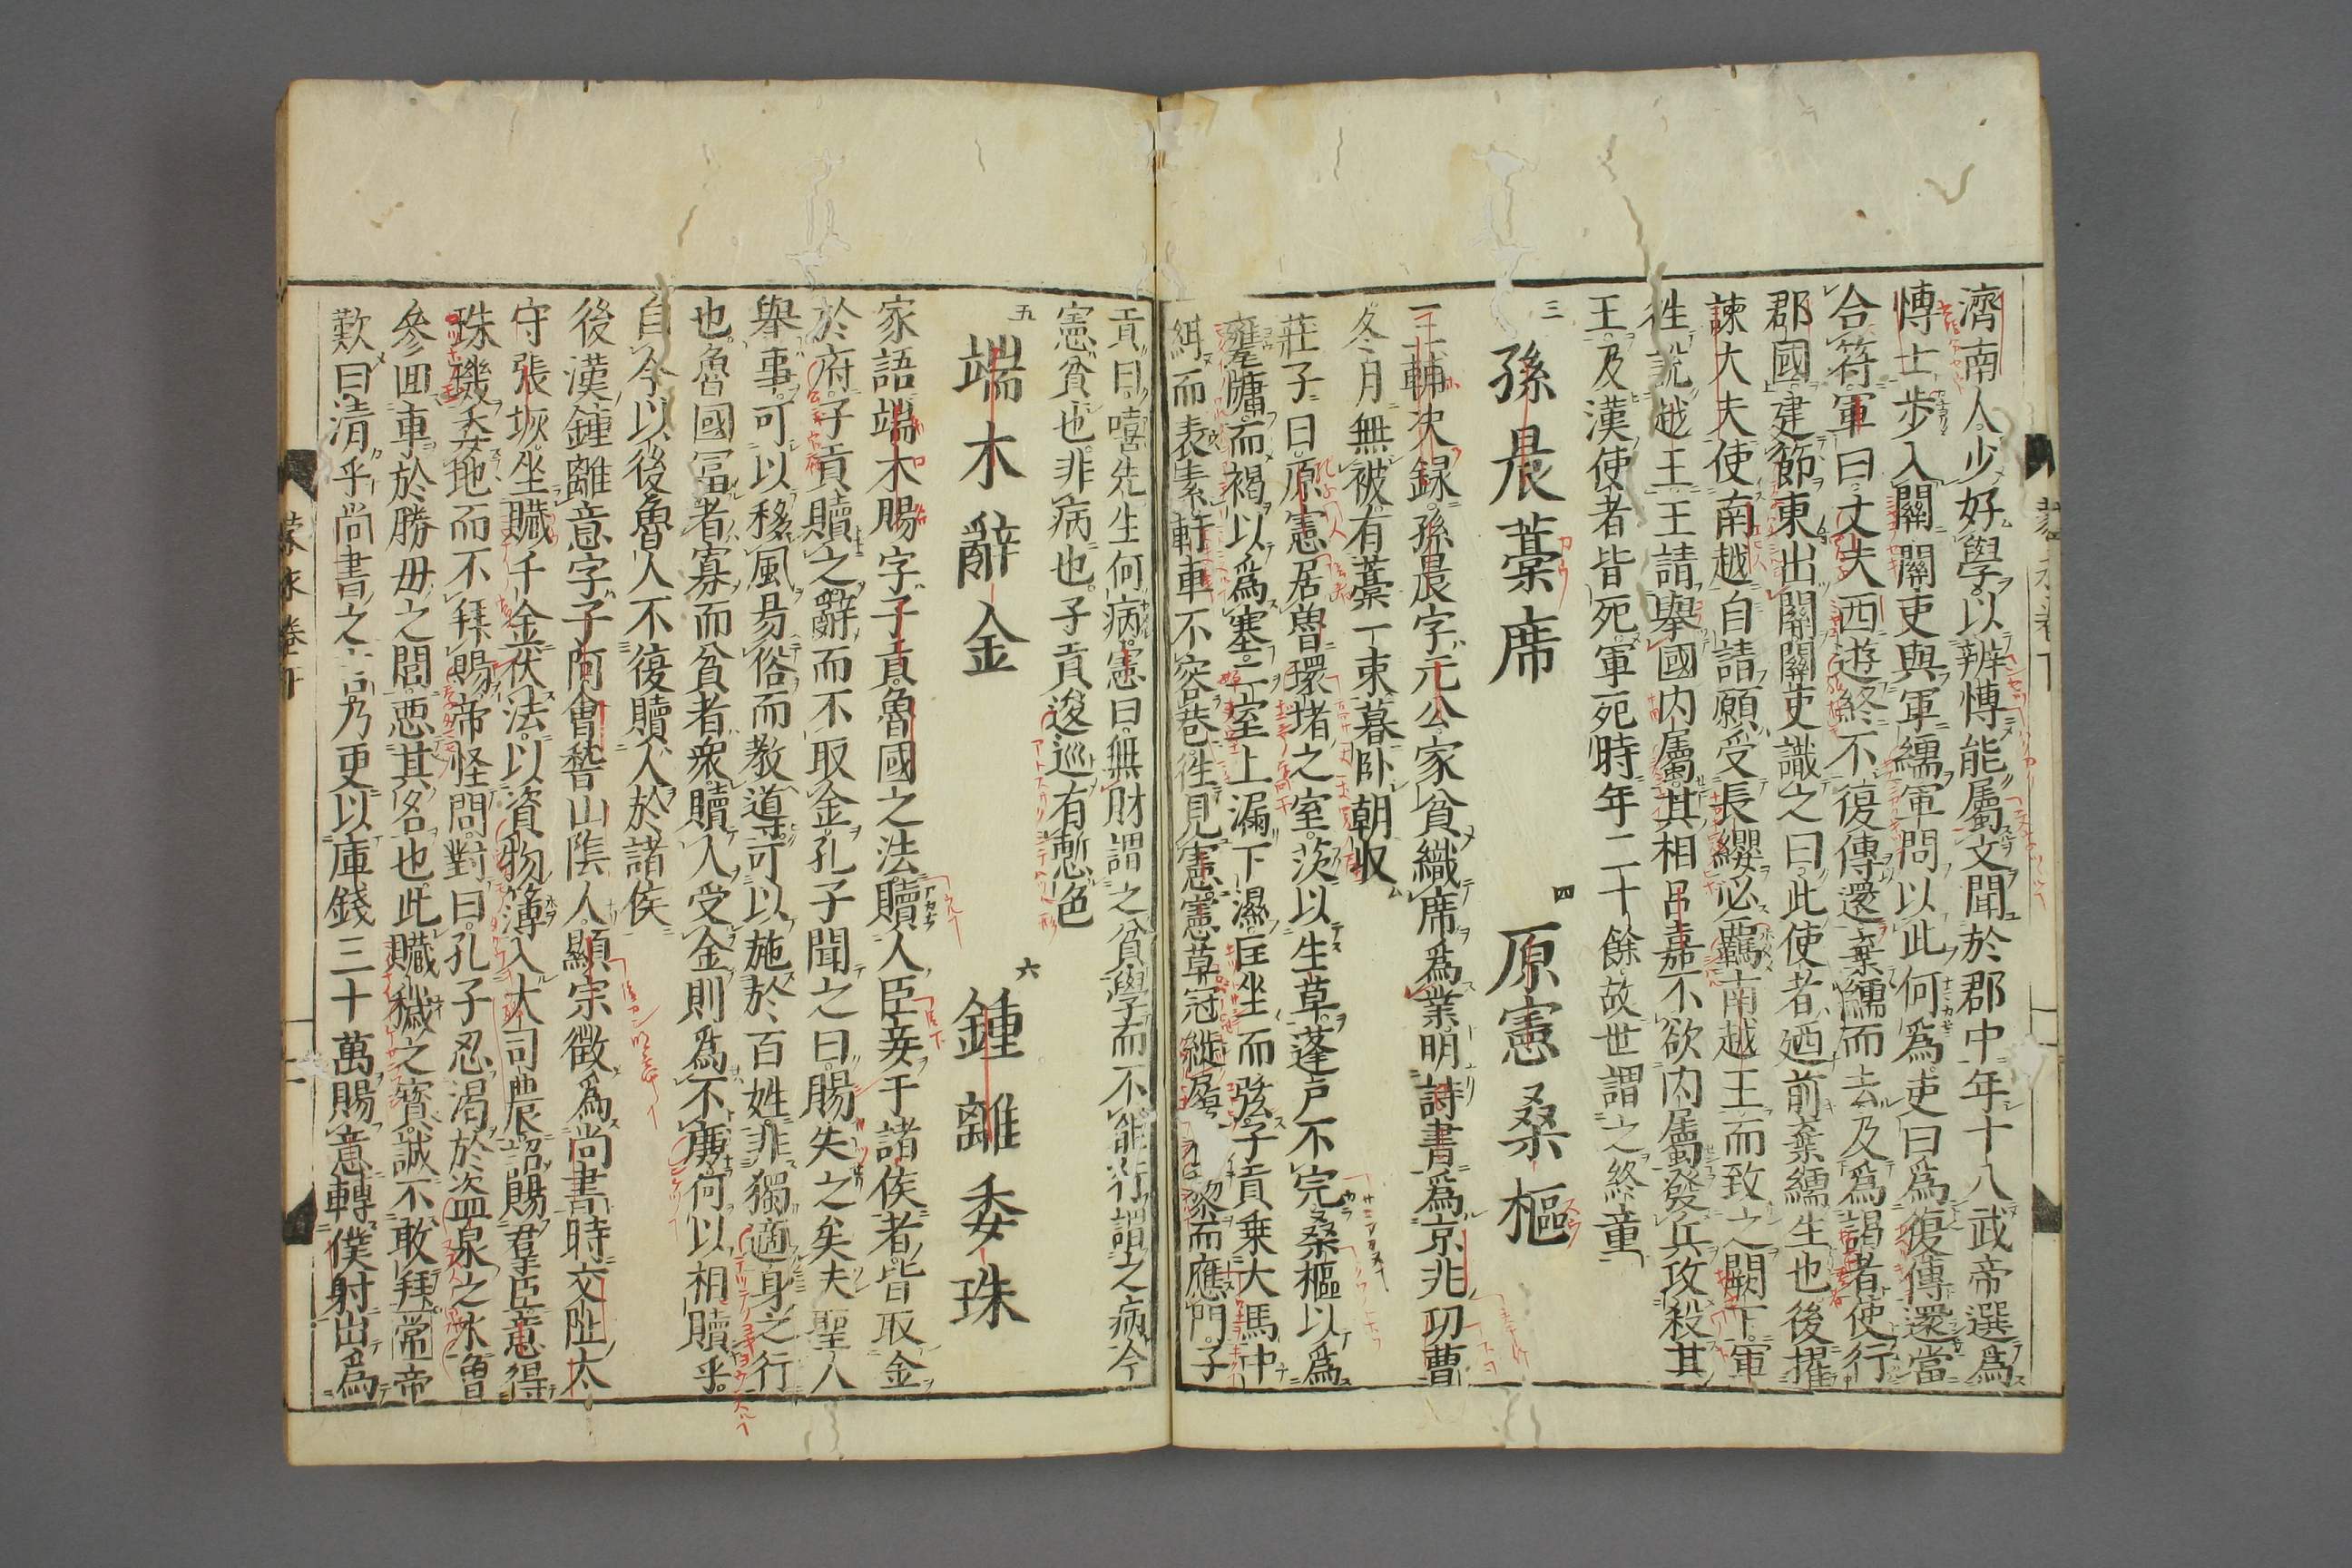 濟南人少好學以辨愽能屬文聞於郡中年十八武帝選爲
愽士步入關關吏與軍繻軍問以此何爲吏曰爲復傳還當
合符軍曰丈夫西遊終不復傳還棄繻而去及爲謁者使行
郡國建節東出關關吏識之曰此使者廼前棄繻生也後擢
諫大夫使南越自請願受長纓必羈南越王而致之闕下軍
徃說越王王請舉國内屬其相吕嘉不欲内屬發兵攻殺其
王及漢使者皆死軍死時年二十餘故世謂之終童
三 孫晨藁席 四 原憲桑樞
三輔决録孫晨字元公家貧織席爲業明詩書爲京兆功曹
冬月無被有藁一束暮卧朝収
莊子曰原憲居魯環堵之室茨以生草蓬户不完桑樞以爲
甕牖而褐以爲塞二室上漏下濕匡坐而弦子貢乗大馬中
紺而表素軒車不容巷徃見憲憲草冠縰履黎而應門子
貢曰嘻先生何病憲曰無財謂之貧學而不能行謂之病今
憲貧也非病也子貢逡巡有慙色
五 端木辭金 六 鍾離委珠
家語端木賜字子貢魯國之法贖人臣妾于諸侯者皆取金
於府子貢贖之辭而不取金孔子聞之曰賜失之矣夫聖人
舉事可以移風易俗而教道可以施於百姓非獨適身之行
也魯國冨者寡而貧者衆贖人受金則爲不廉何以相贖乎
自今以後魯人不復贖人於諸侯
後漢鍾離意字子阿會稽山陰人顯宗徴爲尚書時交阯太
守張恢坐贓千金伏法以資物簿入大司農詔賜羣臣意得
珠璣委地而不拜賜帝怪問對曰孔子忍渇於盗泉之水曽
參回車於勝毋之閭惡其名也此贓穢之寳誠不敢拜帝
歎曰清乎尚書之言乃更以庫錢三十萬賜意轉僕射出爲
蒙求卷下